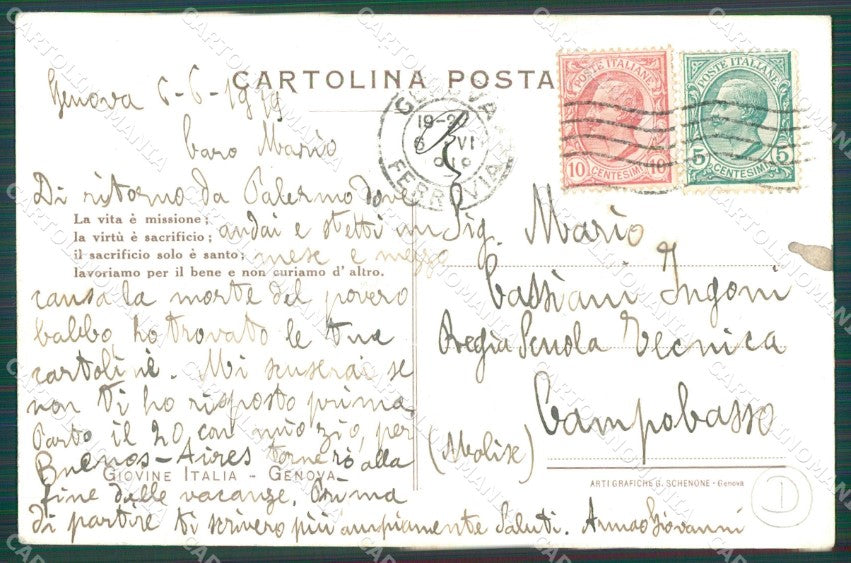 CARTOLINA POSTA
Genova 6-6-1919
Caro Mario
Di ritorno da Palermo dove
andai e stetti un
mese e mezzo
causa la morte del povero
babbo, ho trovato le tue
cartoline. Mi scuserai se
non ti ho risposto prima.
Parto il 20 con mio zio, per
Buenos-Aires tornerò alla
fine delle vacanze. Prima
di partire ti scriverò più ampiamente Saluti.
La vita è missione;
la virtù è sacrificio;
il sacrificio solo è santo;
lavoriamo per il bene e non curiamo d'altro.
GIOVINE ITALIA - GENOVA
POSTE ITALIANE
10 10
CENTESIMI
POSTE ITALIANE
5 5
CENTESIMI
19-20
6 VI
FERROVIA
Sig. Mario
Cassiani Ingoni
Regia Scuola Tecnica
Campobasso
(Molise)
ARTI GRAFICHE G. SCHENONE - Genova
CARTOLINOMANIA